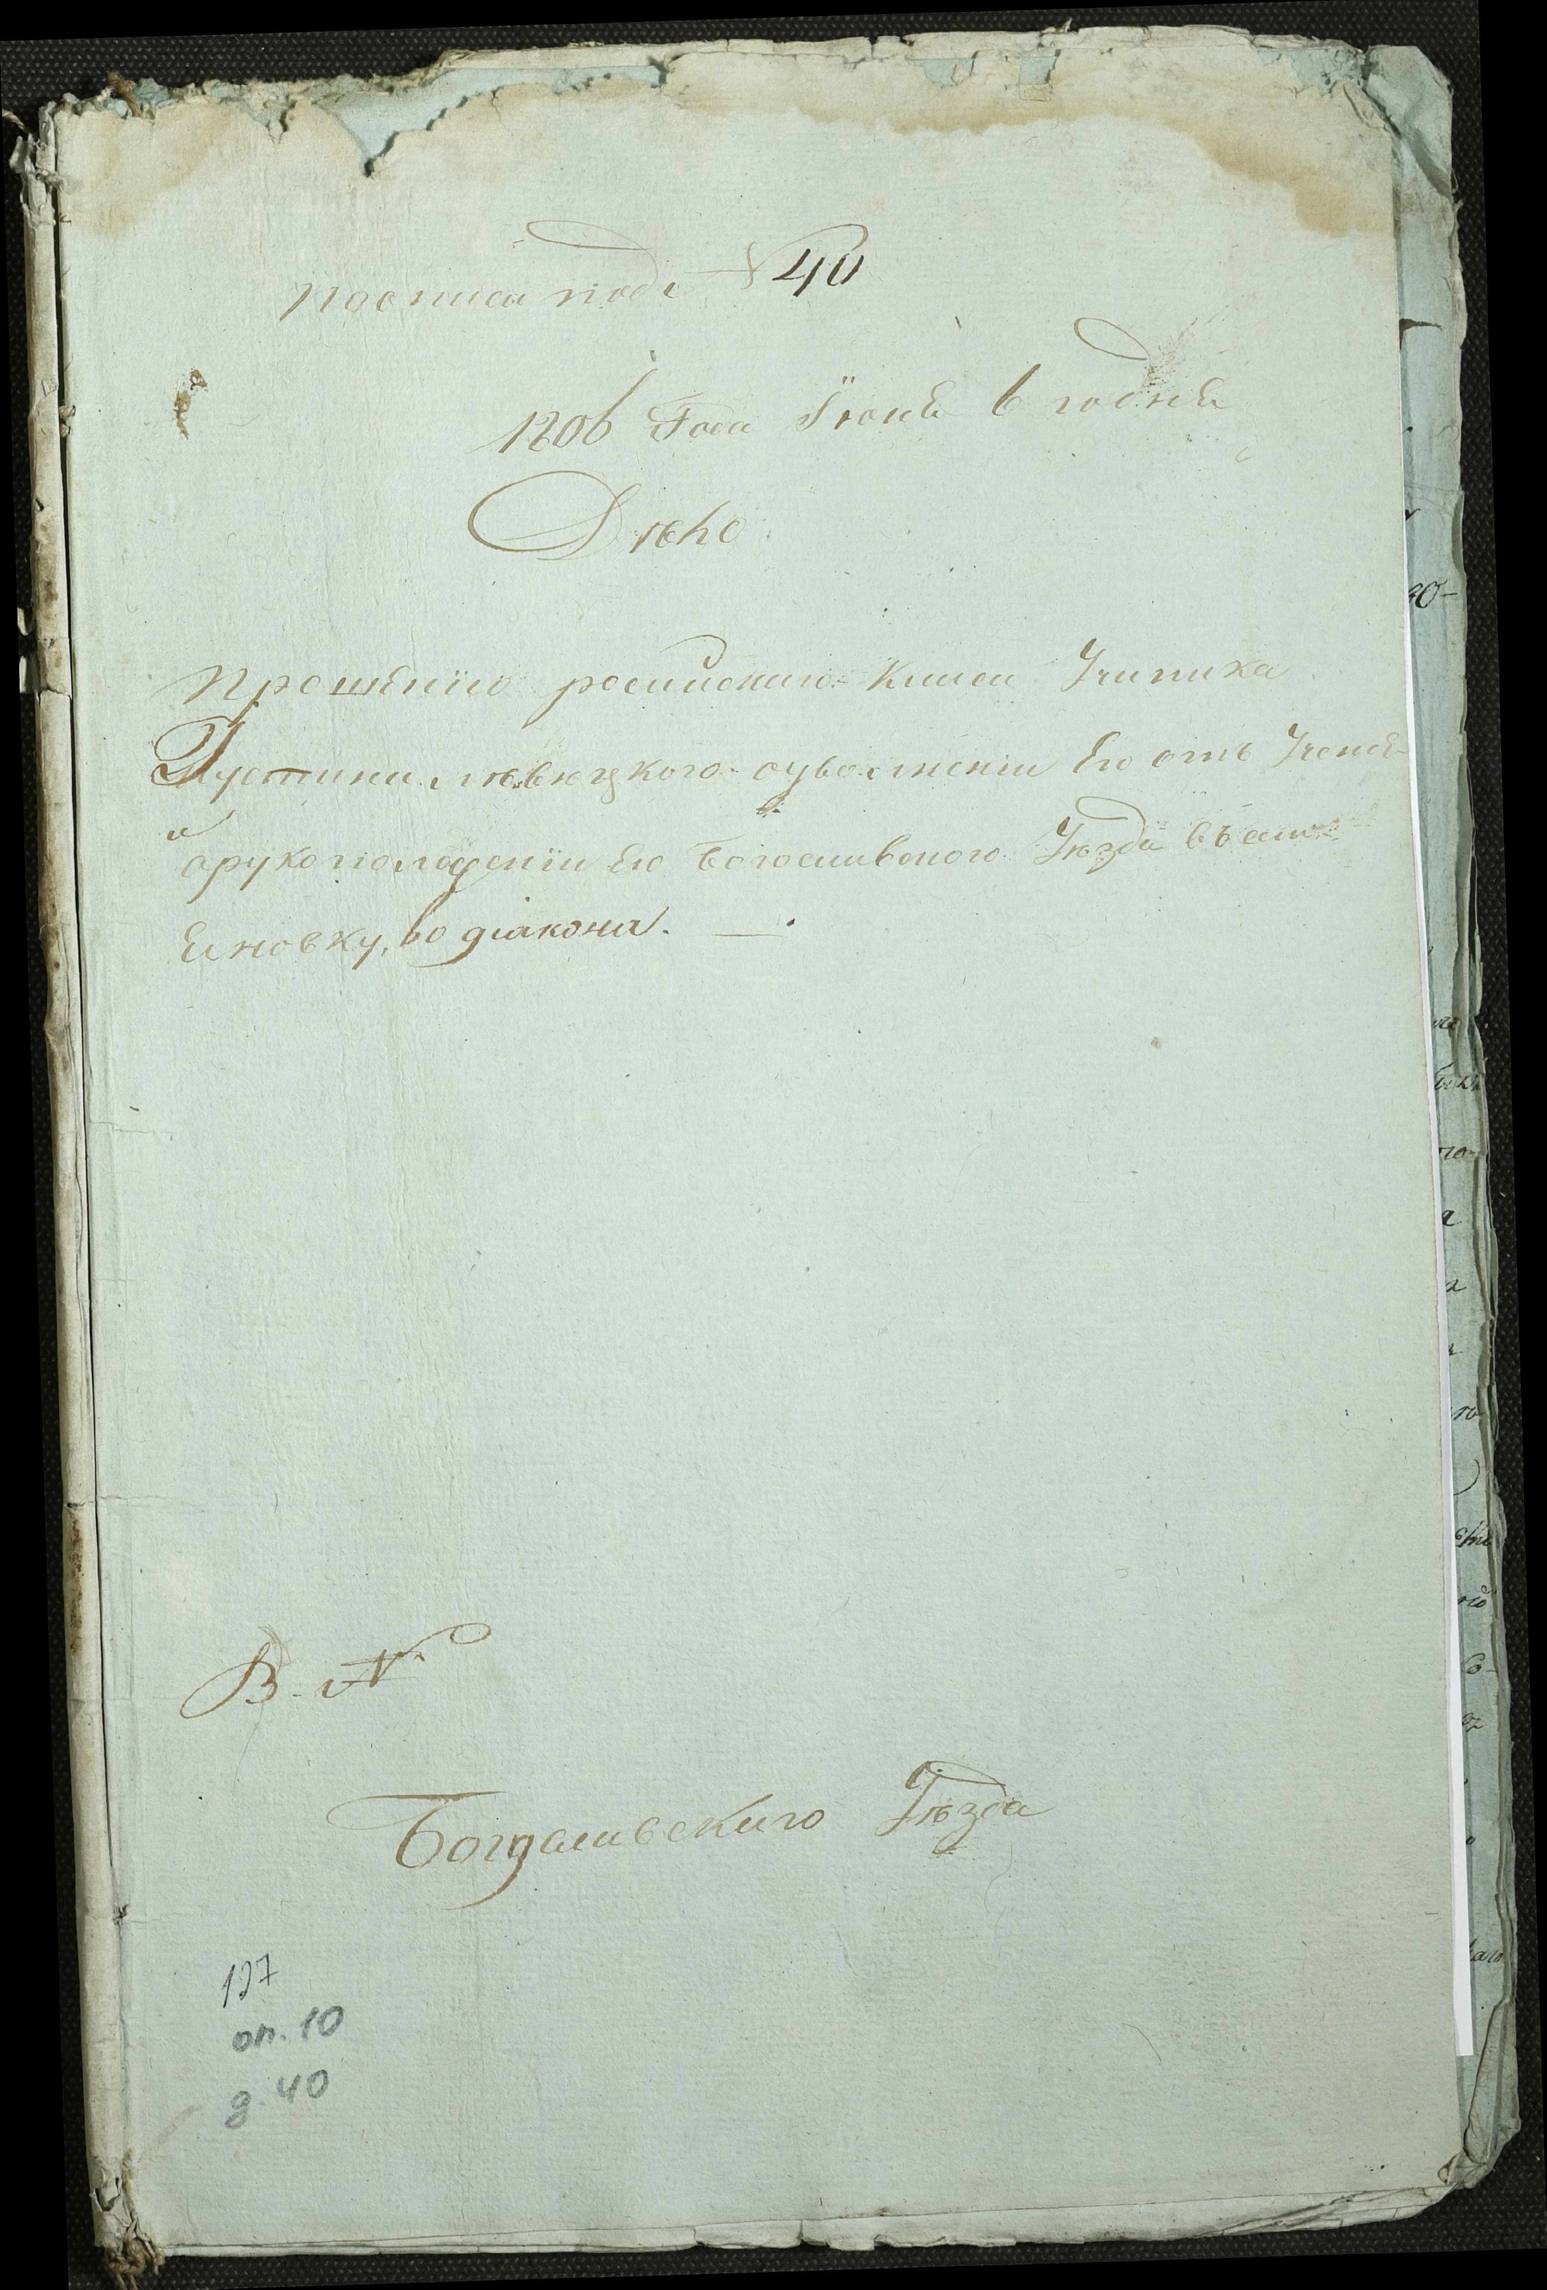 По описи подъ № 40
1806 Года Іюня 6 го дня
Дѣло
Прошенію россійскаго класи Ученика
Іустина Левицкого оувольненіи Его отъ Учені
и орукоположеніи Его Богославского Уѣзда въ
еновку, во діакона.
В. №
Богуславскаго Уѣзда
127
оп. 10
д. 40